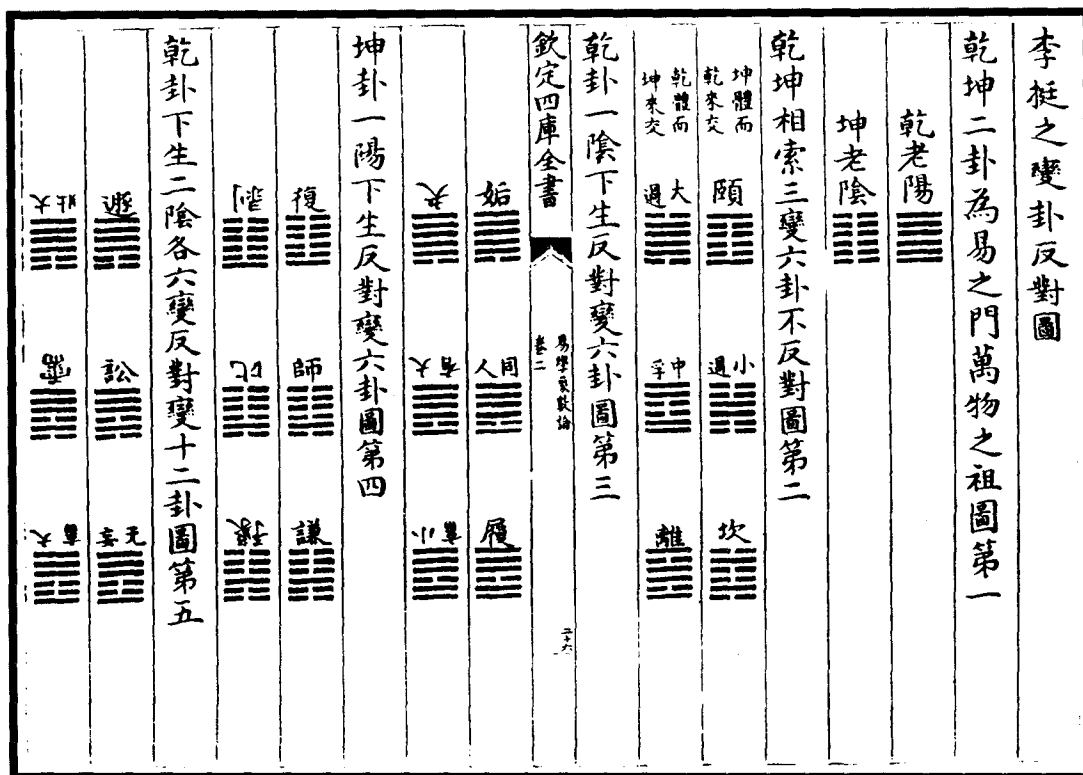 李挺之變卦反對圖
乾坤二卦為易之門萬物之祖圖第一
乾老陽
坤老陰
乾坤相索三變六卦不反對圖第二
坤體而乾來交 頤 小過 坎
乾體而坤來交 大過 中孚 離
乾卦一陰下生反對變六卦圖第三
欽定四庫全書 易學象數論 卷二 二十六
姤 同人 履
夬 大有 小畜
坤卦一陽下生反對變六卦圖第四
復 師 謙
剝 比 豫
乾卦下生二陰各六變反對變十二卦圖第五
遯 訟 无妄
大壯 需 大畜